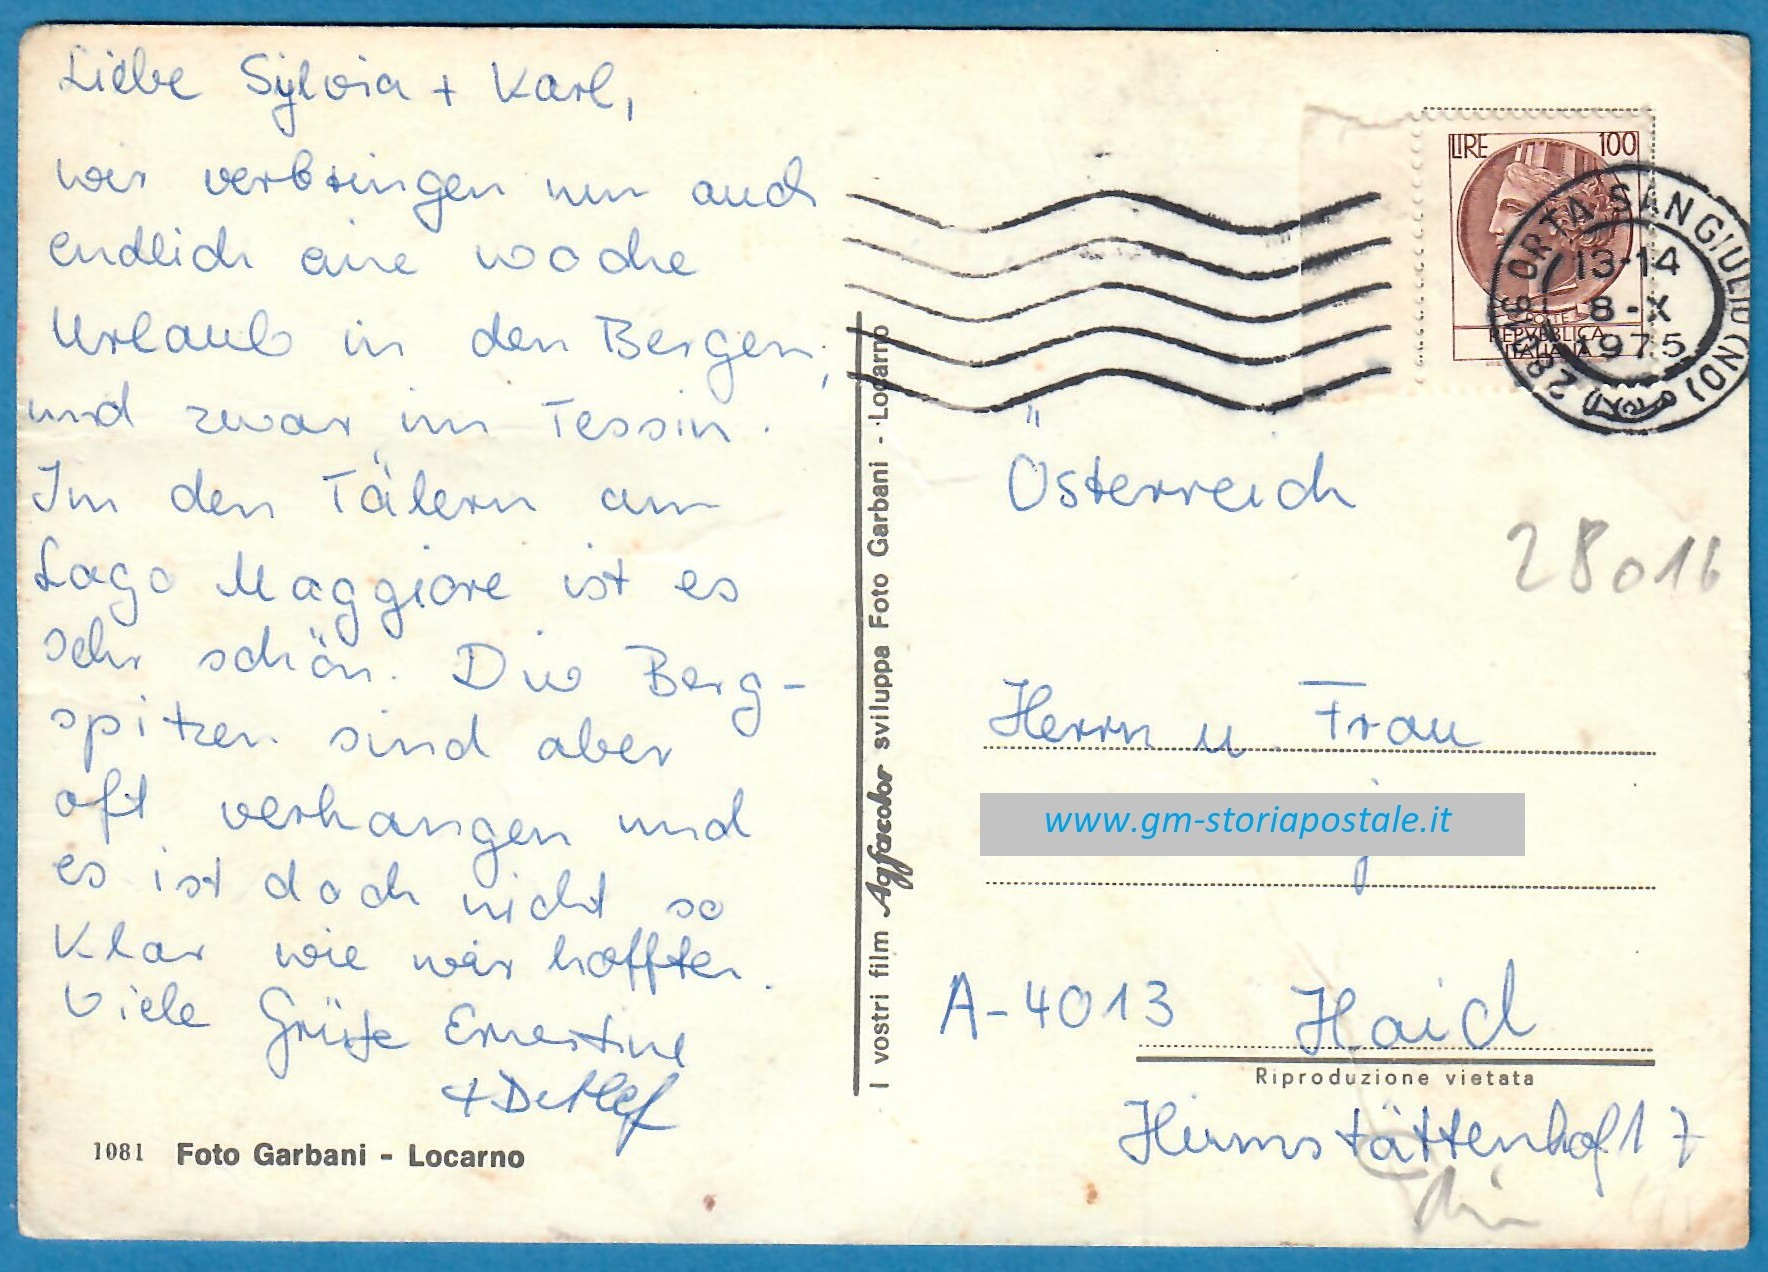 Liebe Sylvia + Karl,
wir verbringen nun auch
endlich eine Woche
Urlaub in den Bergen,
und zwar im Tessin.
In den Tälern am
Lago Maggiore ist es
sehr schön. Die Berg-
spitzen sind aber
oft verhangen und
es ist doch nicht so
klar wie wir hofften.
Viele Grüße Ernestine
+ Detlef
1081 Foto Garbani - Locarno
I vostri film Agfacolor sviluppa Foto Garbani - Locarno
LIRE 100
POSTE
REPVBBLICA
ITALIANA
28016 ORTA SAN GIULIO (NO)
13-14
8-X
1975
Österreich
28016
Herrn u. Frau
www.gm-storiapostale.it
A-4013 Haid
Riproduzione vietata
Hirnstättenhof 17